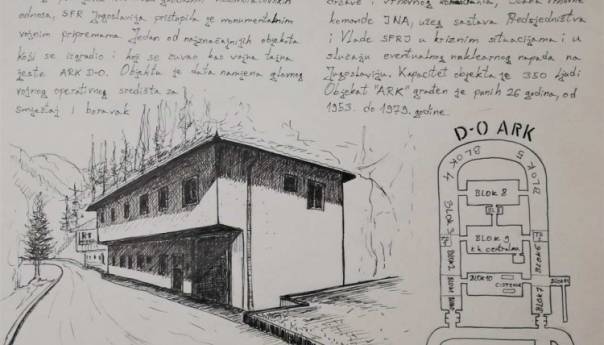 odnosa, SFR Jugoslavija pristupila je monumentalnim
vojnim pripremama. Jedan od najznačajnijih objekata
koji se izgradio i koj se čuvao kao vojna tajna
jeste ARK D-O. Objektu je data namjena glavnog
ratnog operativnog središta za
smještaj i boravak
komande JNA, užeg sastava Predsjedništva
i Vlade SFRJ u kriznim situacijama i u
slučaju eventualnog nuklearnog napada na
Jugoslaviju. Kapacitet objekta je 350 ljudi
Objekat "ARK" građen je punih 26 godina, od
1953. do 1979. godine.
D-O ARK
BLOK 5
BLOK 4
BLOK 8
BLOK 3
BLOK 9
t.h. centrala
BLOK 6
BLOK 2
BLOK 10
CISTERNE
BLOK 7